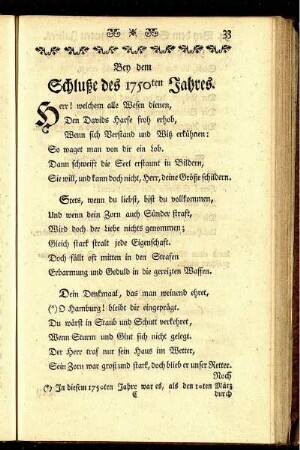 33
Bey dem
Schluße des 1750ten Jahres.
Herr! welchem alle Wesen dienen,
Den Davids Harfe froh erhob,
Wenn sich Verstand und Witz erkühnen:
So waget man von dir ein Lob.
Dann schweift die Seel erstaunt in Bildern,
Sie will, und kann doch nicht, Herr, deine Größe schildern.
Stets, wenn du liebst, bist du vollkommen,
Und wenn dein Zorn auch Sünder straft,
Wird doch der Liebe nichts genommen;
Gleich stark stralt jede Eigenschaft.
Doch fällt oft mitten in den Strafen
Erbarmung und Geduld in die gereizten Waffen.
Dein Denkmaal, das man weinend ehret,
(*) O Hamburg! bleibt dir eingeprägt.
Du wärst in Staub und Schutt verkehret,
Wenn Sturm und Glut sich nicht gelegt.
Der Herr traf nur sein Haus im Wetter,
Sein Zorn war groß und stark, doch blieb er unser Retter.
Noch
(*) In diesem 1750ten Jahre war es, als den 10ten März
C durch